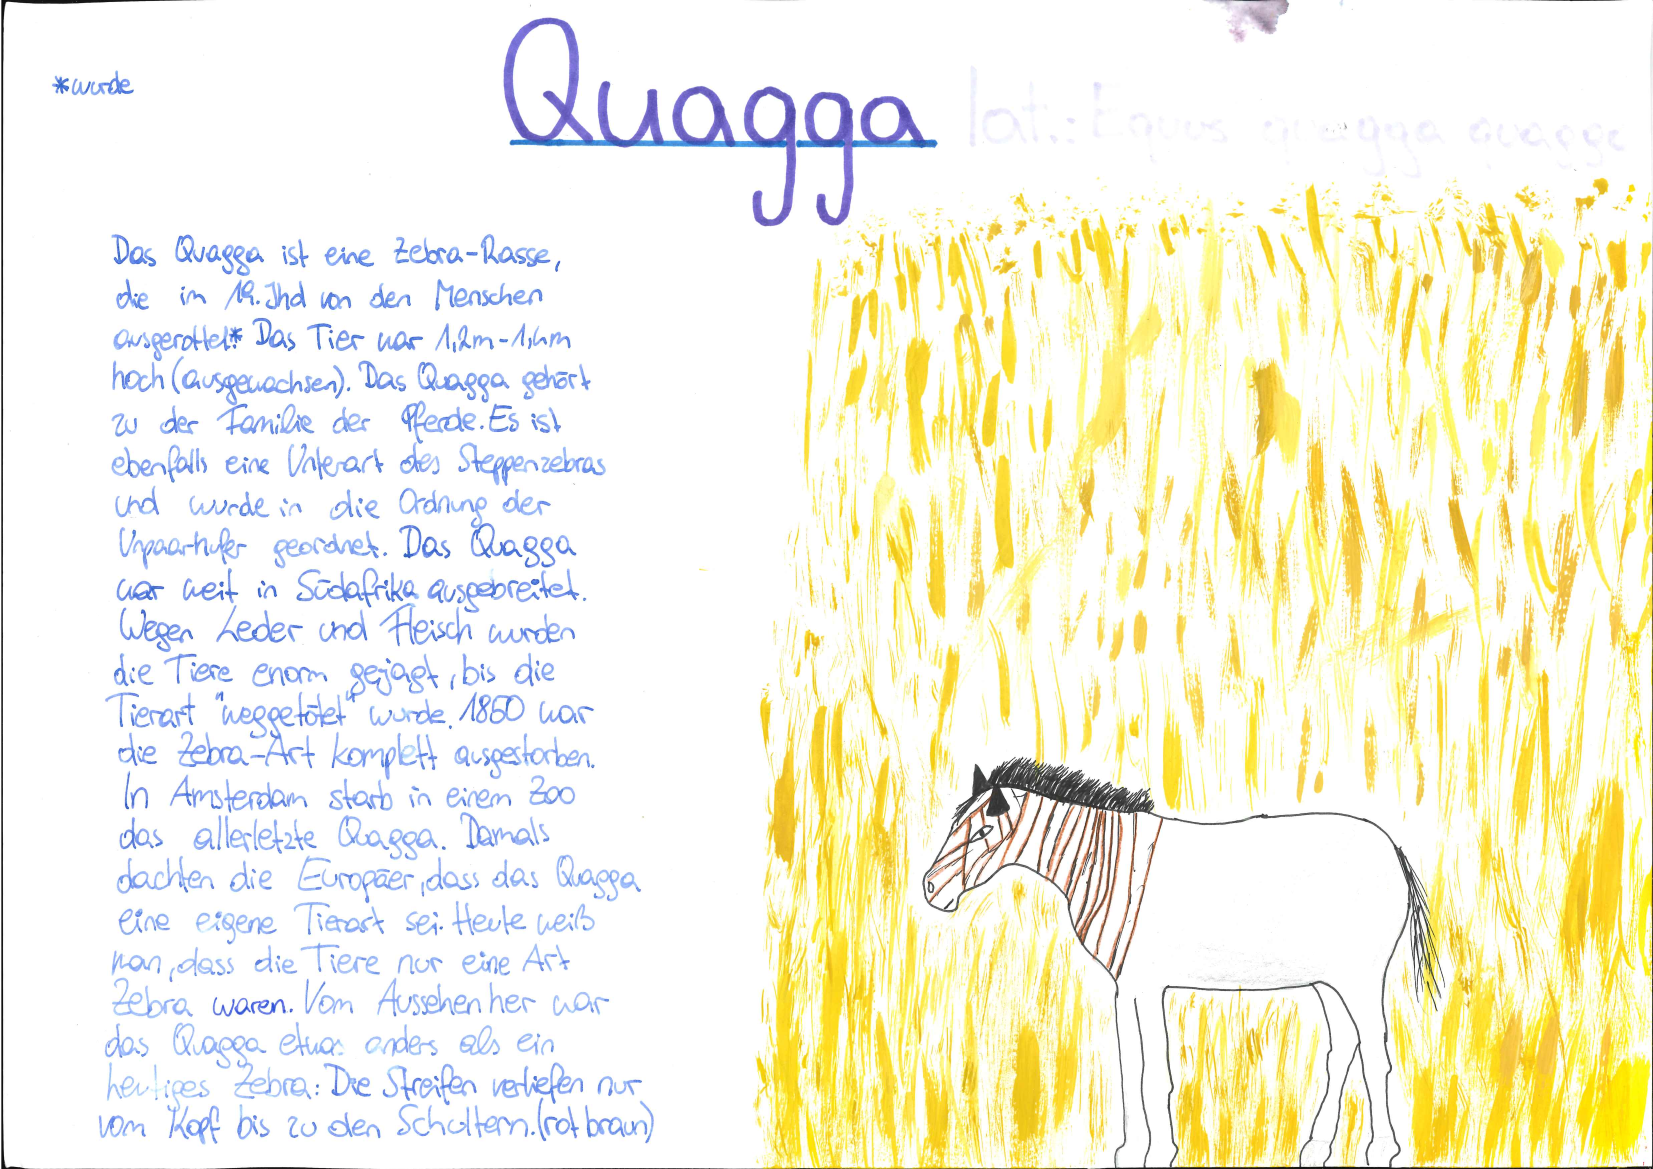 *wurde
Quagga lat.: Equus quagga quagga
Das Quagga ist eine Zebra-Rasse,
die im 19. Jhd von den Menschen
ausgerottet*. Das Tier war 1,2m-1,4m
hoch (ausgewachsen). Das Quagga gehört
zu der Familie der Pferde. Es ist
ebenfalls eine Unterart des Steppenzebras
und wurde in die Ordnung der
Unpaarhufer geordnet. Das Quagga
war weit in Südafrika ausgebreitet.
Wegen Leder und Fleisch wurden
die Tiere enorm gejagt, bis die
Tierart "weggetötet" wurde. 1860 war
die Zebra-Art komplett ausgestorben.
In Amsterdam starb in einem Zoo
das allerletzte Quagga. Damals
dachten die Europäer, dass das Quagga
eine eigene Tierart sei. Heute weiß
man, dass die Tiere nur eine Art
Zebra waren. Vom Aussehen her war
das Quagga etwas anders als ein
heutiges Zebra: Die Streifen verliefen nur
vom Kopf bis zu den Schultern. (rot braun)